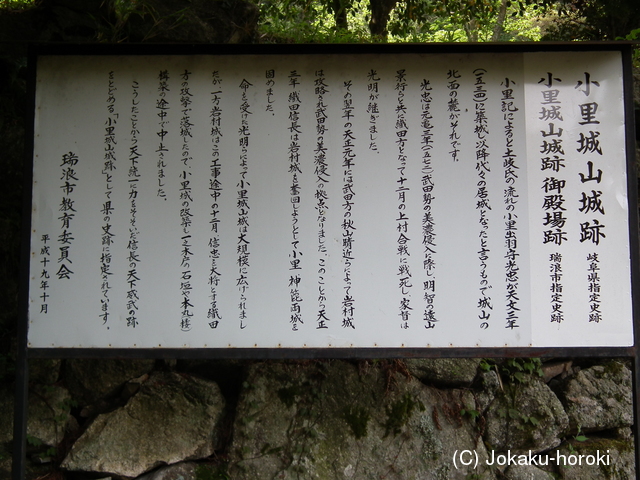 小里城山城跡 岐阜県指定史跡
小里城山城跡 御殿場跡 瑞浪市指定史跡
小里記によると土岐氏の流れの小里出羽守光忠が天文三年
(一五三四)に築城し以降代々の居城となったと言うもので城山の
北面の麓がそれです。
光忠は元亀三年(一五七二)武田勢の美濃侵入に際し、明智の遠山
景行らと共に織田方となって十二月の上村合戦に戦死し、家督は
光明が継ぎました。
その翌年の天正元年には武田方の秋山晴近らによって岩村城
は攻略され武田勢の美濃侵入の拠点となりました。このことから天正
二年 織田信長は岩村城を奪回しようとして小里 神箆両城を
固めました。
命を受けた光明らによって小里城山城は大規模に広げられまし
たが一方岩村城はこの工事途中の十二月 信忠を大将とする織田
方の攻撃で落城したので、小里城の改築も一之木戸の石垣や本丸桂
構築の途中で中止されました。
こうしたことから天下統一に力をそそいだ信長の天下戦武の跡
をとどめる「小里城山城跡」として県の史跡に指定されています。
瑞浪市教育委員会
平成十九年十月
(C) Jokaku-horoki